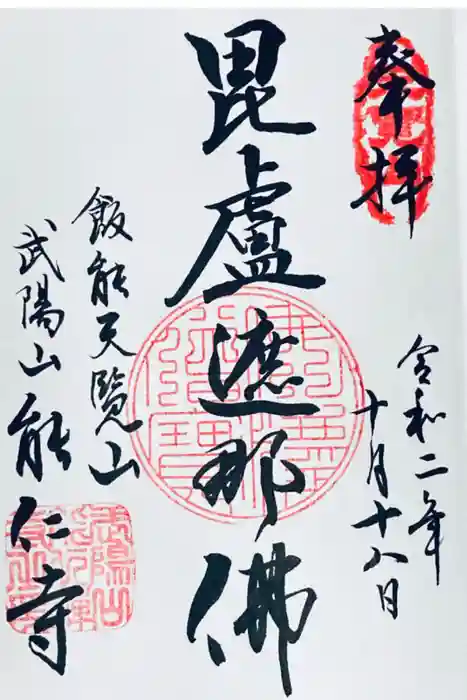 奉拝
令和二年
十月十八日
毘盧遮那佛
飯能天覧山
武陽山能仁寺